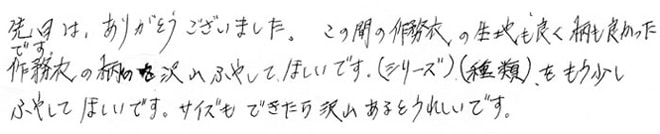 先日は、ありがとうございました。この間の作務衣の生地も良く柄も良かった
です。
作務衣の柄も沢山ふやしてほしいです。(シリーズ)(種類)をもう少し
ふやしてほしいです。サイズもできたら沢山あるとうれしいです。